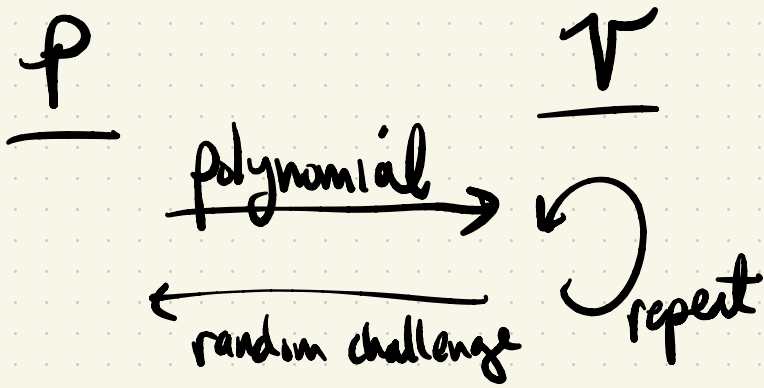 P
V
polynomial
random challenge
repeat